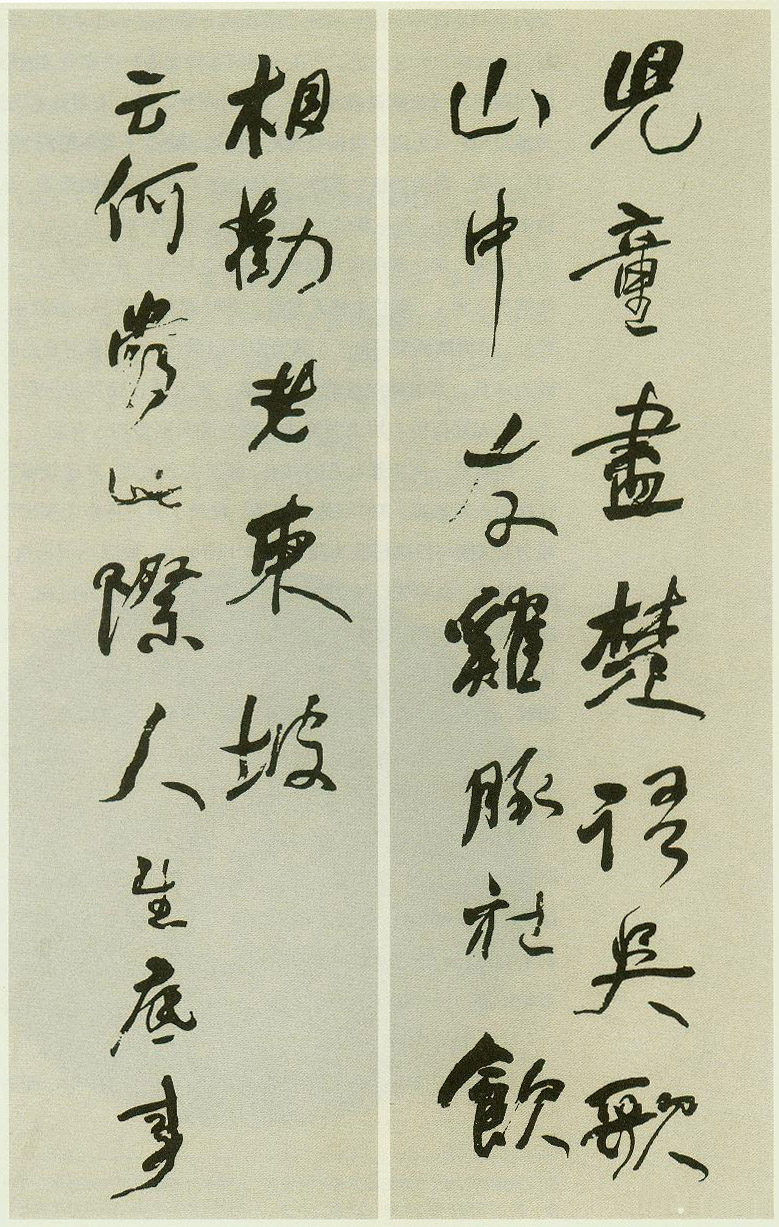 兒童盡楚語吳歌
山中友雞豚社飲
相勸老東坡
云何當此際人生底事